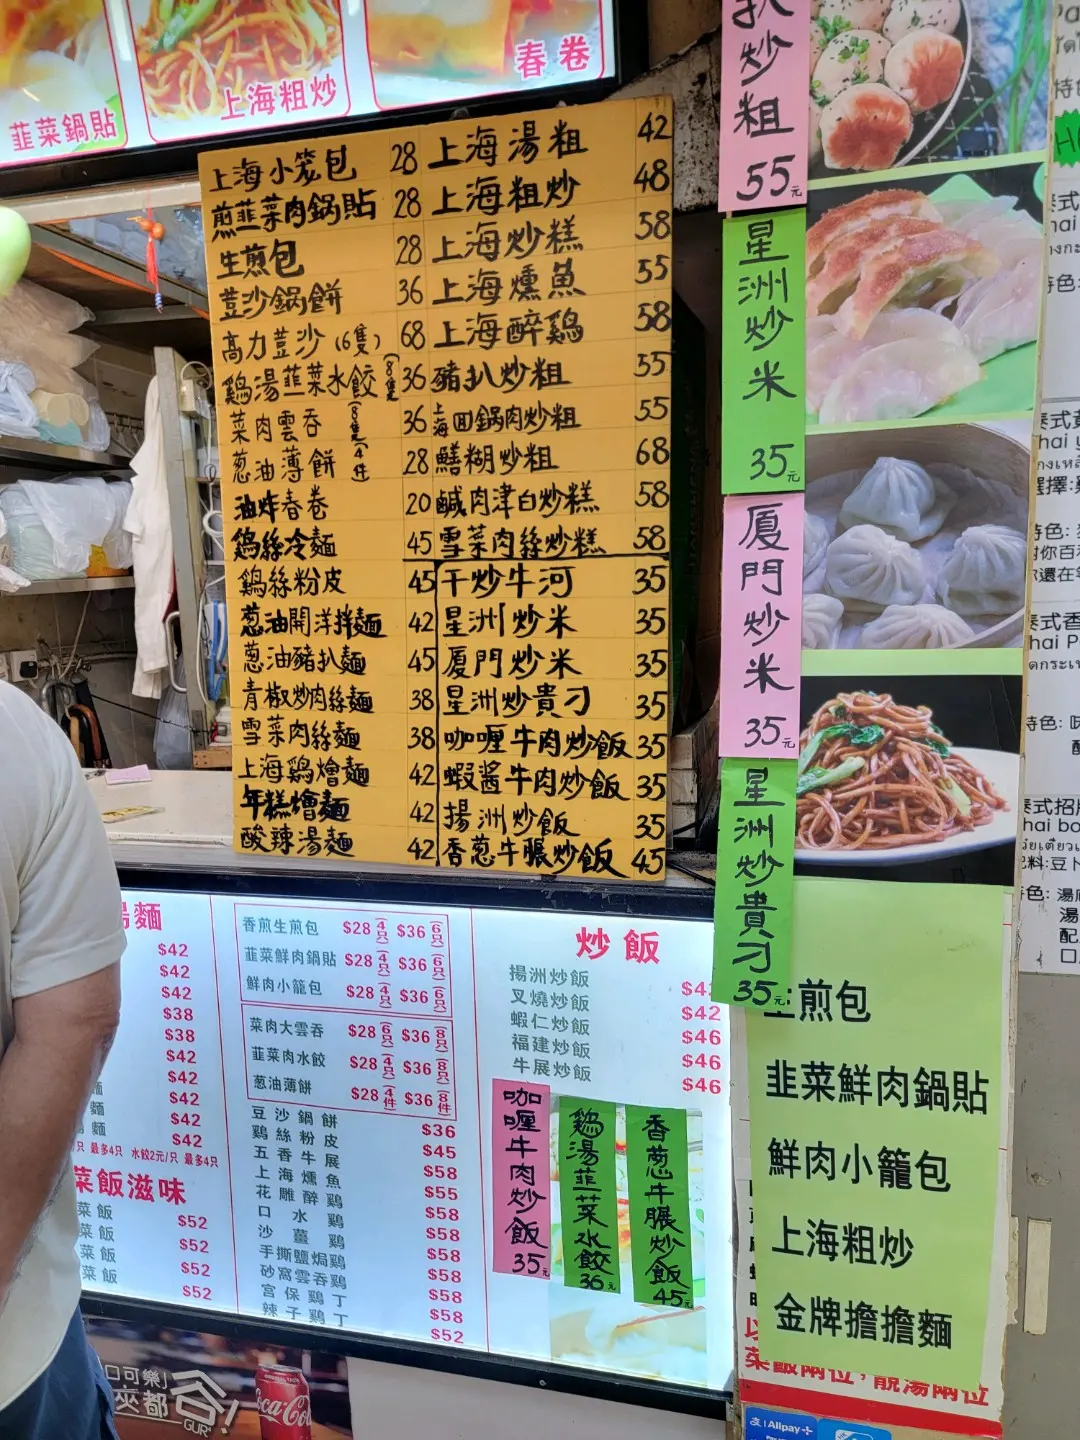 韭菜鍋貼
上海粗炒
春卷
上海小笼包 28
煎韭菜肉鍋貼 28
生煎包 28
荳沙鍋餅 36
高力荳沙(6隻) 68
鷄湯韭菜水餃(8隻) 36
菜肉雲吞(8隻) 36
葱油薄餅(4件) 28
油炸春卷 20
鷄絲冷麵 45
鷄絲粉皮 45
葱油開洋拌麵 42
葱油豬扒麵 45
青椒炒肉絲麵 38
雪菜肉絲麵 38
上海鷄燴麵 42
年糕燴麵 42
酸辣湯麵 42
上海湯粗 42
上海粗炒 48
上海炒糕 58
上海燻魚 55
上海醉鷄 58
豬扒炒粗 55
上海回鍋肉炒粗 55
鱔糊炒粗 68
鹹肉津白炒糕 58
雪菜肉絲炒糕 58
干炒牛河 35
星洲炒米 35
厦門炒米 35
星洲炒貴刁 35
咖喱牛肉炒飯 35
蝦醬牛肉炒飯 35
揚洲炒飯 35
香葱牛脹炒飯 45
扒炒粗
55元
星洲炒米
35元
厦門炒米
35元
星洲炒貴刁
35元
湯麵
$42
$42
$42
$38
$38
$42
$42
$42
麵 $42
麵 $42
只 最多4只 水餃2元/只 最多4只
菜飯滋味
菜飯 $52
菜飯 $52
菜飯 $52
菜飯 $52
香煎生煎包 $28(4只) $36(6只)
韭菜鮮肉鍋貼 $28(4只) $36(6只)
鮮肉小籠包 $28(4只) $36(6只)
菜肉大雲吞 $28(6只) $36(8只)
韭菜肉水餃 $28(4只) $36(8只)
葱油薄餅 $28(4件) $36(8件)
豆沙鍋餅 $36
鷄絲粉皮 $45
五香牛展 $58
上海燻魚 $55
花雕醉鷄 $58
口水鷄 $58
沙薑鷄 $58
手撕鹽焗鷄 $58
砂窩雲吞鷄 $58
宮保鷄丁 $58
辣子鷄丁 $52
炒飯
揚洲炒飯
叉燒炒飯 $42
蝦仁炒飯 $46
福建炒飯 $46
牛展炒飯 $46
咖喱牛肉炒飯
35元
鷄湯韭菜水餃
36元
香葱牛脹炒飯
45元
煎包
韭菜鮮肉鍋貼
鮮肉小籠包
上海粗炒
金牌擔擔麵
菜飯兩位，靚湯兩位
Alipay+
口可樂
夾都
谷!
GUR!
Coca-Co